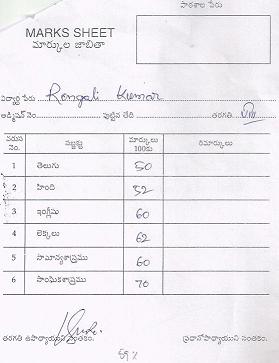 పాఠశాల పేరు
MARKS SHEET
మార్కుల జాబితా
విద్యార్థి పేరు Rongali Kumar
అడ్మిషన్ నెం. పుట్టిన తేది తరగతి VIII
వరుస నెం. సబ్జక్టు మార్కులు 100కు రిమార్కులు
1 తెలుగు 50
2 హింది 52
3 ఇంగ్లీషు 60
4 లెక్కలు 62
5 సామాన్యశాస్త్రము 60
6 సాంఘికశాస్త్రము 70
తరగతి ఉపాధ్యాయుని సంతకం. ప్రధానోపాధ్యాయుని సంతకం.
59%